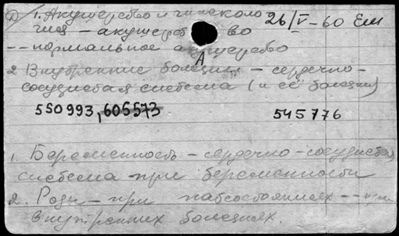 1. Акушерство и гинеколо
гия – акушерство 26/V-60 Ем
-- нормальное акушерство
А
2 Внутренние болезни – сердечно-
сосудистая система (и её болезни)
550993, 605573 545776
1. Беременность – сердечно-сосудистая
система при беременности
2. Роды – при -- при
внутренних болезнях.